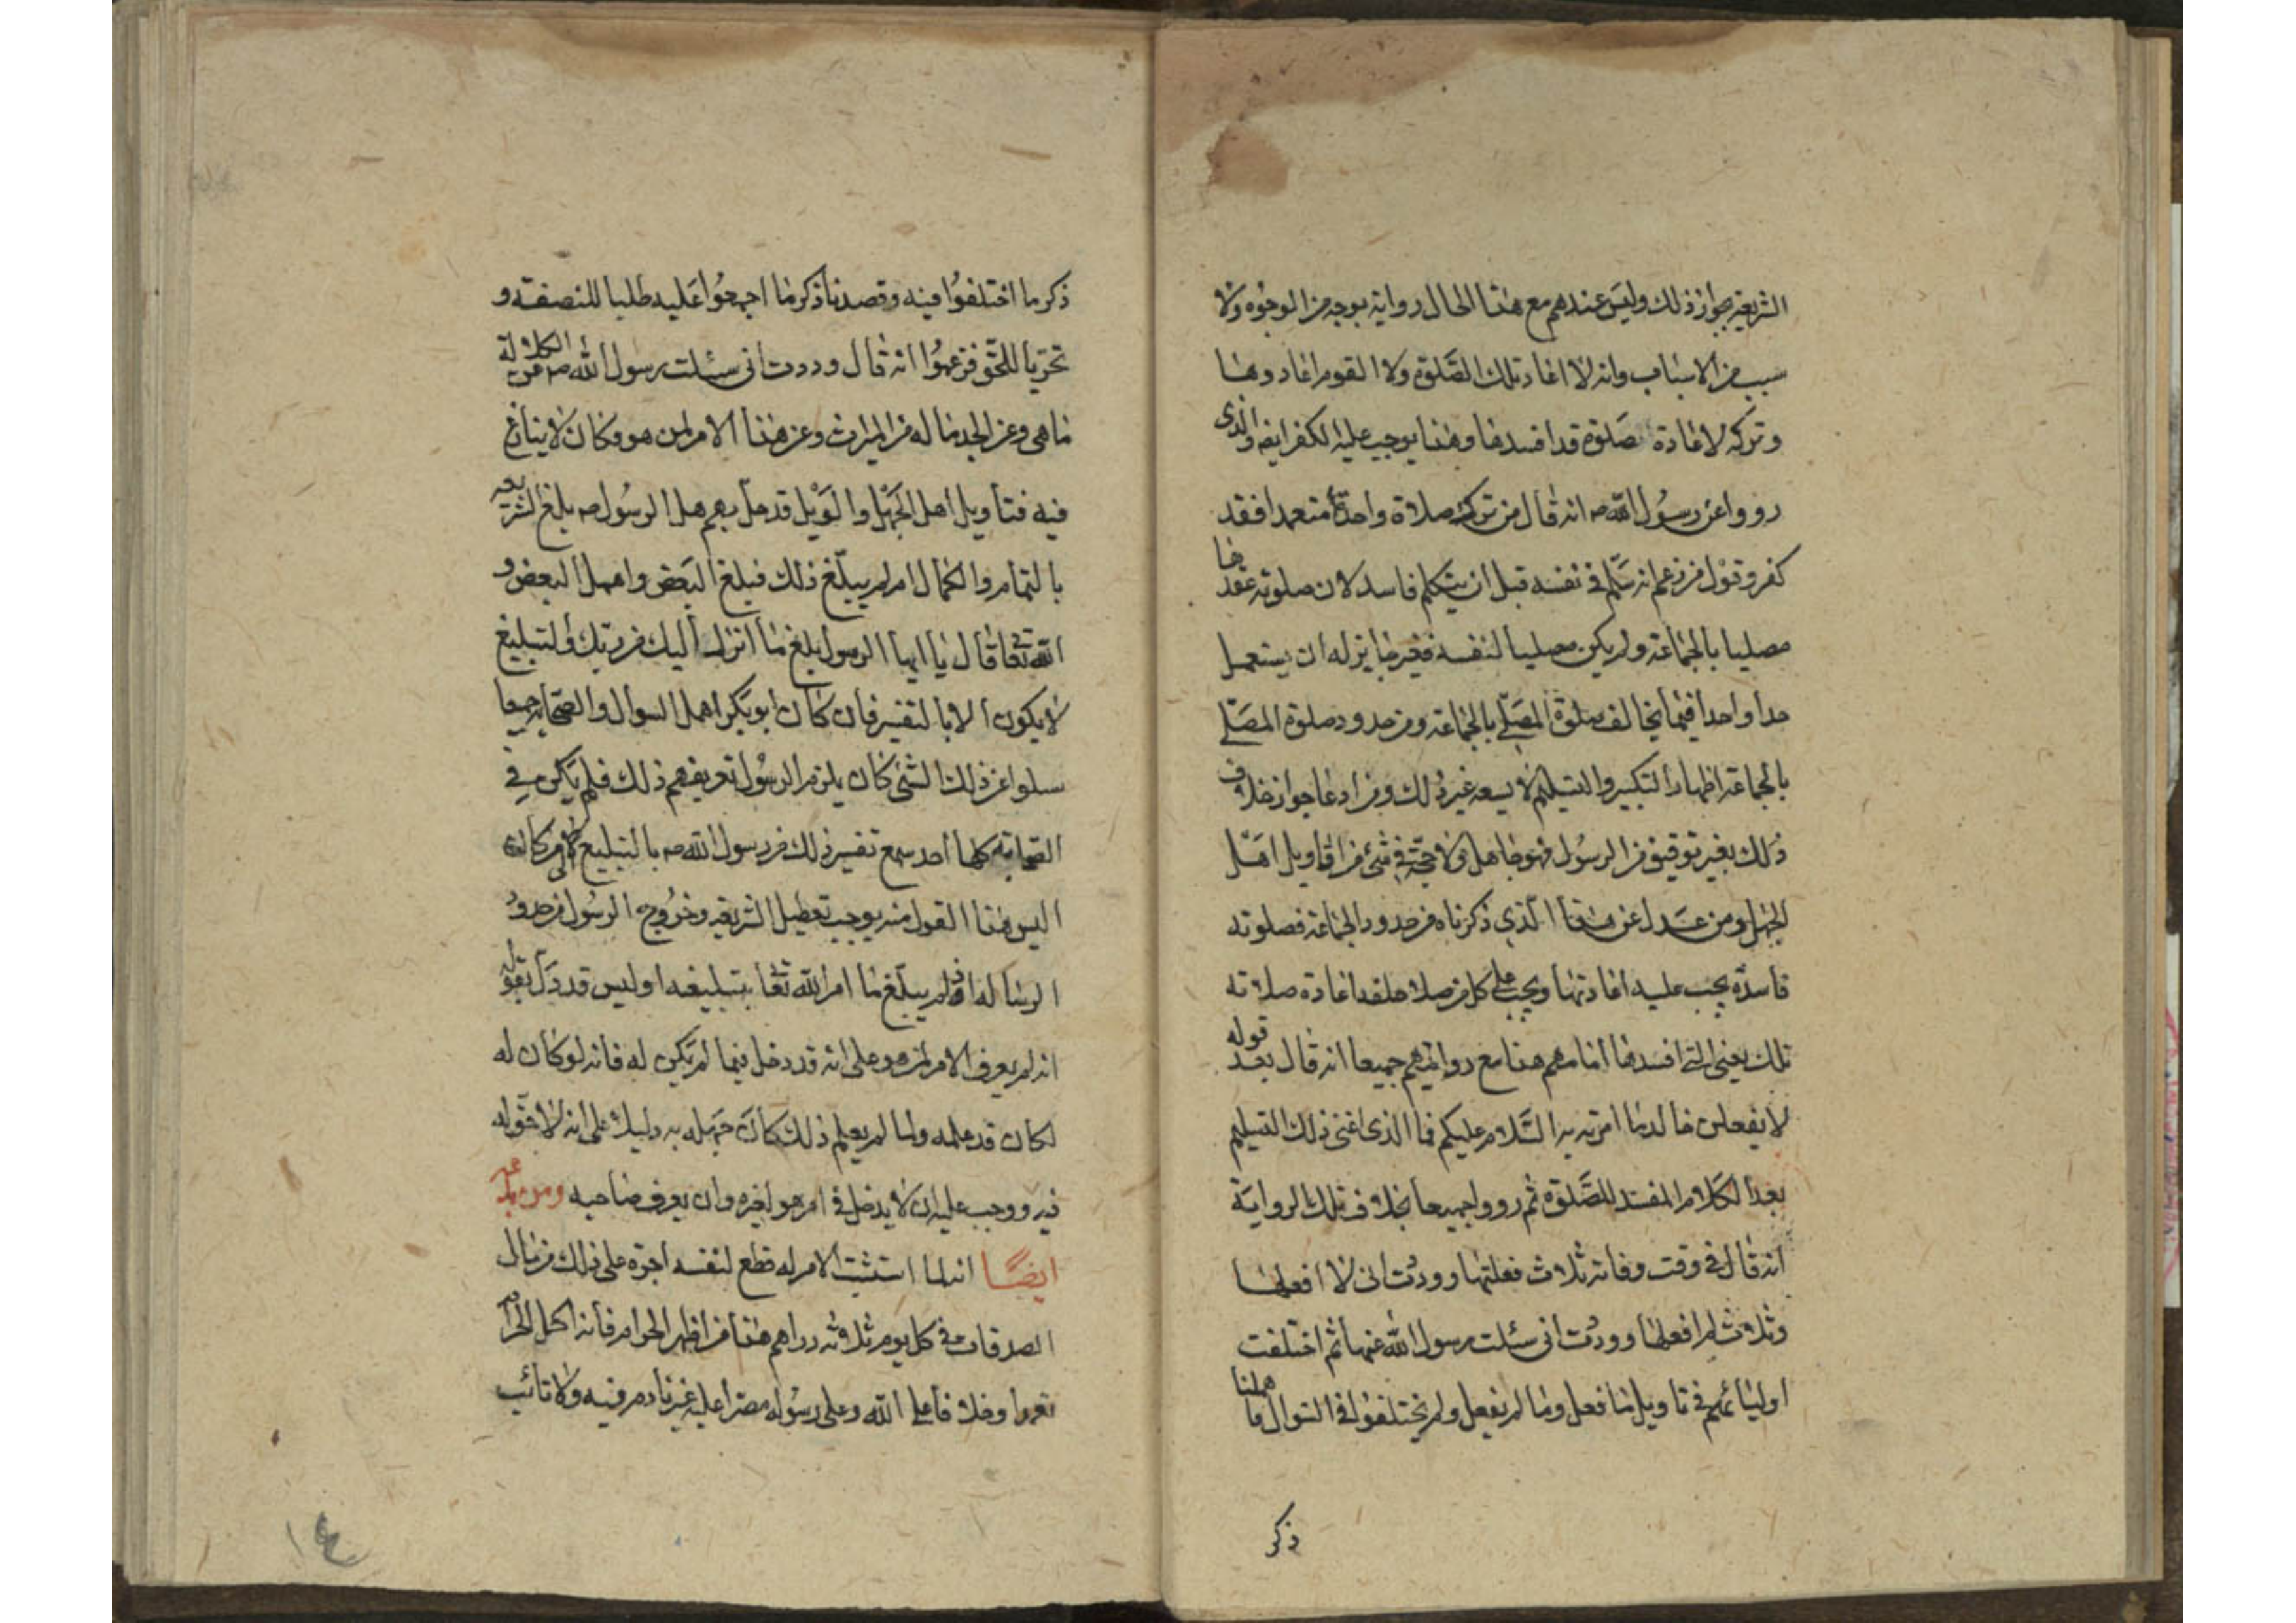 الشريعة بجواز ذلك وليس عندهم مع هذا الحال رواية بوجه من الوجوه ولا
سبب من الاسباب وانه لا اعاد تلك الصلوة ولا القوم اعادوها
وتركه لاعادة صلوة قد افسدها وهذا يوجب عليه الكفر ايضا والذى
رووا عن رسول الله ص انه قال من ترك صلاة واحدة متعمدا فقد
كفر وقول من زعم انه سلم فى نفسه قبل ان يتكلم فاسد لان صلوته عقدها
مصليا بالجماعة ولم يكن مصليا لنفسه فغير جايز له ان يستعمل
حدا واحدا فيما يخالف صلوة المصلى بالجماعة ومن حدود صلوة المصلى
بالجماعة اظهار التكبير والتسليم لا يسعه غير ذلك ومن ادعا جواز خلاف
ذلك بغير توقيف من الرسول فهو جاهل ولا حجة فى شئ من اقاويل اهل
الجهل ومن عدل عن هذا الذي ذكرناه من حدود الجماعة فصلوته
فاسدة يجب عليه اعادتها ويجب على كل من صلا خلفه اعادة صلاته
تلك يعنى التى افسدها امامهم هذا مع روايتهم جميعا انه قال بعد قوله
لا يفعلن خالد ما امرته به السلام عليكم فما الذى اغنى ذلك التسليم
بعد الكلام المفسد للصلوة ثم رووا جميعا بخلاف تلك الرواية
انه قال فى وقت وفاته ثلاث فعلتها ووددت انى لا افعلها
وثلاث لم افعلها ووددت انى سئلت رسول الله عنها ثم اختلفت
اوليائهم فى تاويل ما فعل وما لم يفعل ولم يختلفوا فى السوال فاهملنا
ذكر
ذكر ما اختلفوا فيه وقصدنا ذكر ما اجمعوا عليه طلبا للنصفة و
تحريا للحق فزعموا انه قال وددت انى سئلت رسول الله ص عن الكلالة
ما هى وعن الجد ما له من الميراث وعن هذا الامر لمن هو وكان لا ينازع
فيه فتاويل اهل الجهل والويل قد حل بهم هل الرسول ص بلغ الشريعة
بالتمام والكمال ام لم يبلغ ذلك فبلغ البعض واهمل البعض و
الله تعا قال يا ايها الرسول بلغ ما انزل اليك من ربك والتبليغ
لا يكون الا بالتفسير فان كان ابو بكر اهمل السوال والصحابة جميعا
سلوا عن ذلك الشئ كان يلزم الرسول تعريفهم ذلك فلم يكن فى
الصحابة كلها احد سمع تفسير ذلك من رسول الله ص بالتبليغ
اليس هذا القول منه يوجب تعطيل الشريعة وخروج الرسول من حدود
الرسالة اذ لم يبلغ ما امر الله تعا بتبليغه اوليس قد دل بقوله
انه لم يعرف الامر لمن هو على انه قد دخل فيما لم يكن له فانه لو كان له
لكان قد علمه ولما لم يعلم ذلك كان جهله به دليلا على انه لا حق له
فيه ووجب عليه ان لا يدخل فى امر هو لغيره وان يعرف صاحبه ومن بدعه
ايضا انه لما استثبت الامر له قطع لنفسه اجرة على ذلك من مال
الصدقات فى كل يوم ثلاثه دراهم هذا من اظهر الحرام فانه اكل الحرام
تعمدا وخلافا على الله وعلى رسوله مصرا عليه غير نادم فيه ولا تائب